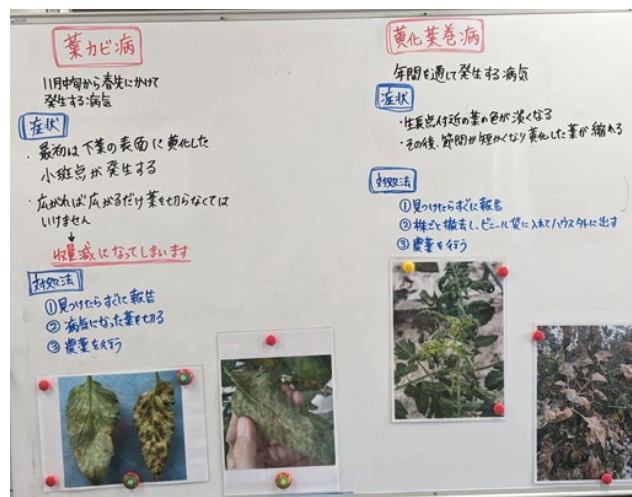 葉カビ病
11月中旬から春先にかけて
発生する病気
症状
・最初は下葉の表面に黄化した
小斑点が発生する
・広がれば広がるだけ葉を切らなくては
いけません
↓
収量減になってしまいます
対処法
①見つけたらすぐに報告
②病気になった葉を切る
③農薬を行う
黄化葉巻病
年間を通して発生する病気
症状
・生長点付近の葉の色が淡くなる
・その後、節間が短かくなり黄化した葉が縮れる
対処法
①見つけたらすぐに報告
②株ごと撤去し、ビニール袋に入れてハウスの外に出す
③農薬を行う